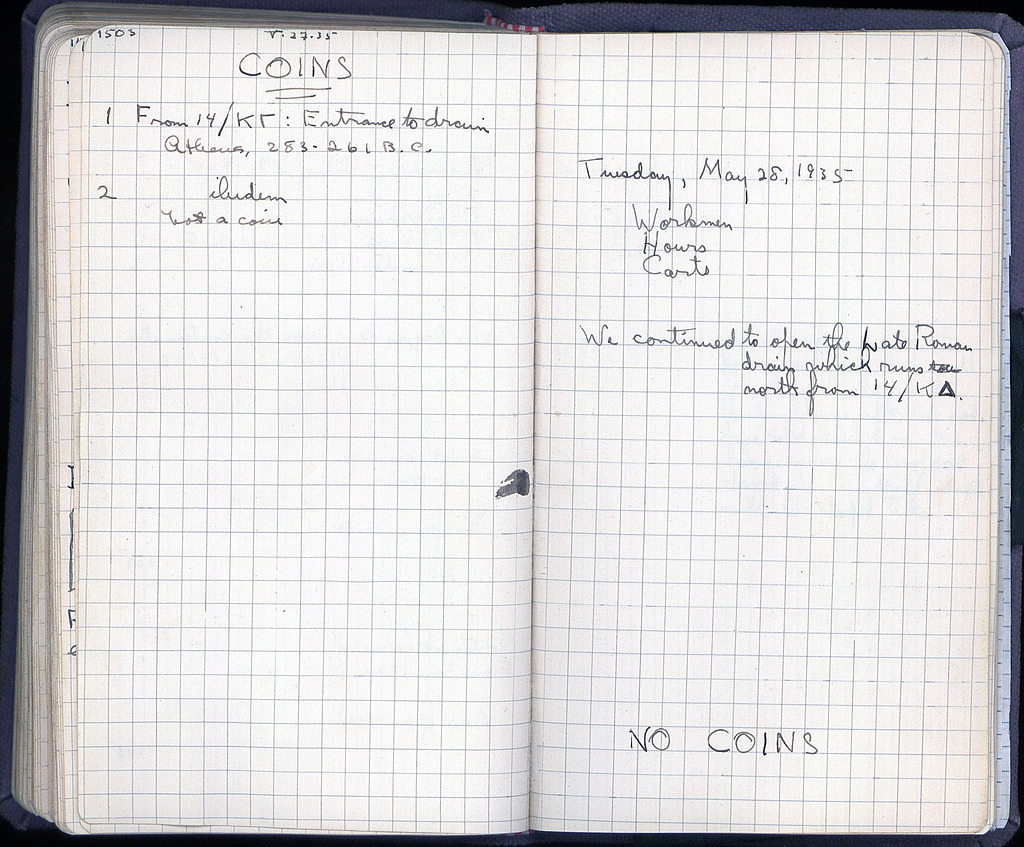 1503
V.27.35
COINS
1 From 14/ΚΓ: Entrance to drain
Athens, 283-261 B.C.
2 ibidem
Not a coin
Tuesday, May 28, 1935
Workmen
Hours
Carts
We continued to open the Late Roman
drain which runs
north from 14/ΚΔ.
NO COINS